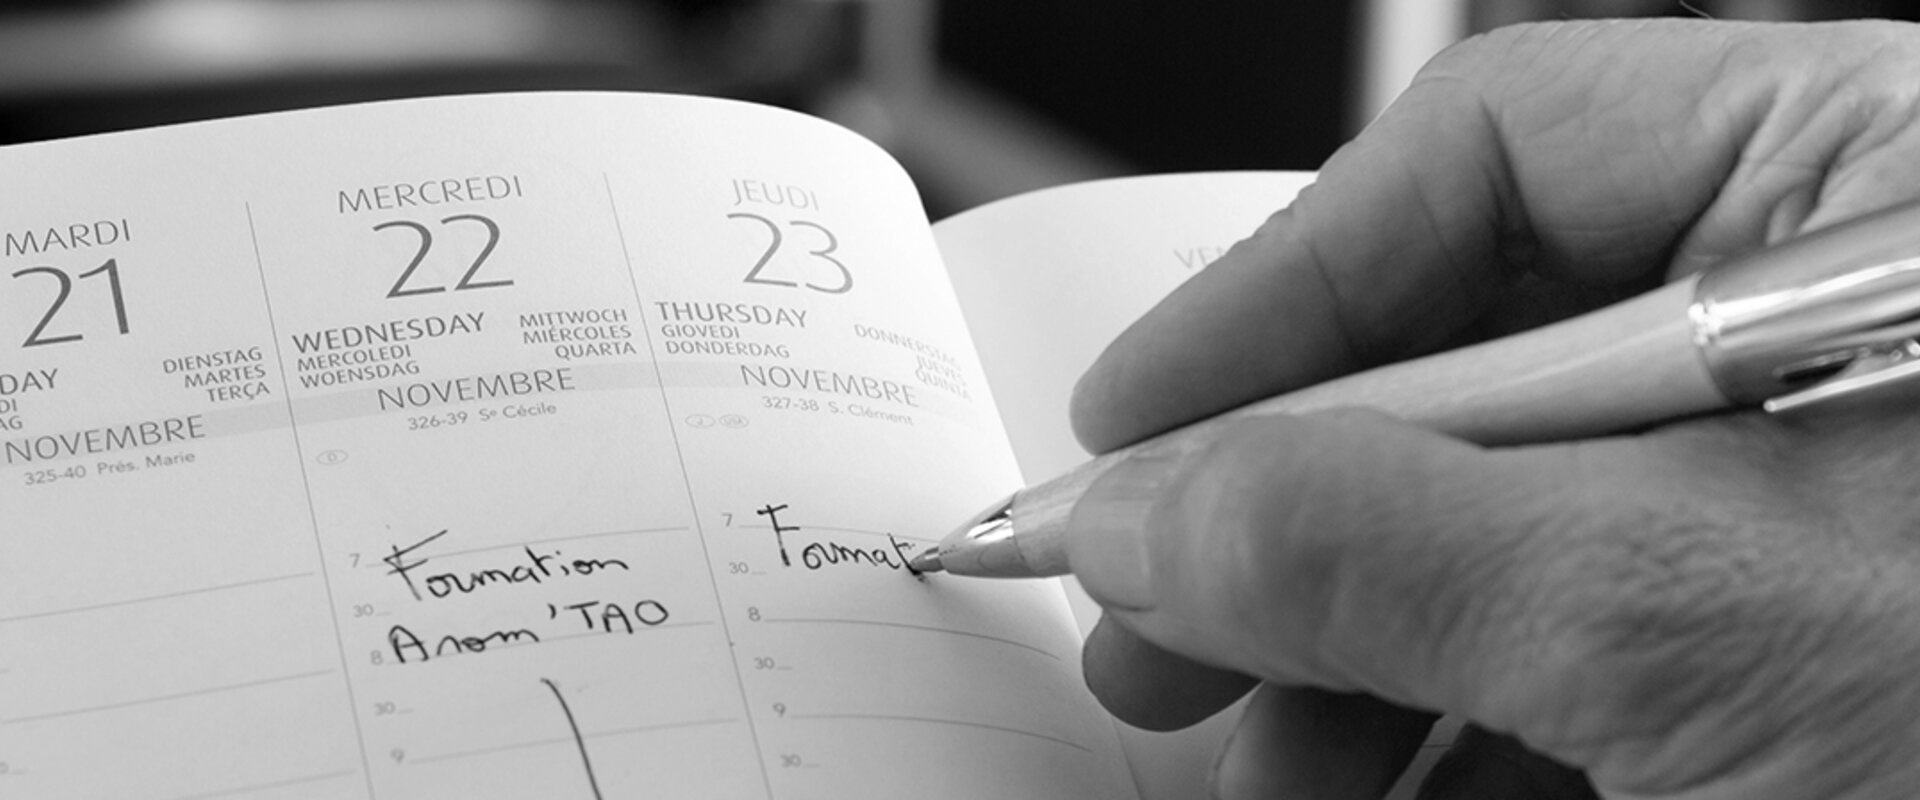 MARDI
21
DIENSTAG
MARTES
TERÇA
NOVEMBRE
325-40 Prés. Marie
MERCREDI
22
WEDNESDAY
MERCOLEDI
WOENSDAG
MITTWOCH
MIÉRCOLES
QUARTA
NOVEMBRE
326-39 Se Cécile
D
7
Formation
30
Arom'TAO
8
30
9
JEUDI
23
THURSDAY
GIOVEDI
DONDERDAG
DONNERSTAG
JUEVES
QUINTA
NOVEMBRE
327-38 S. Clément
7
Format
30
8
30
9
30